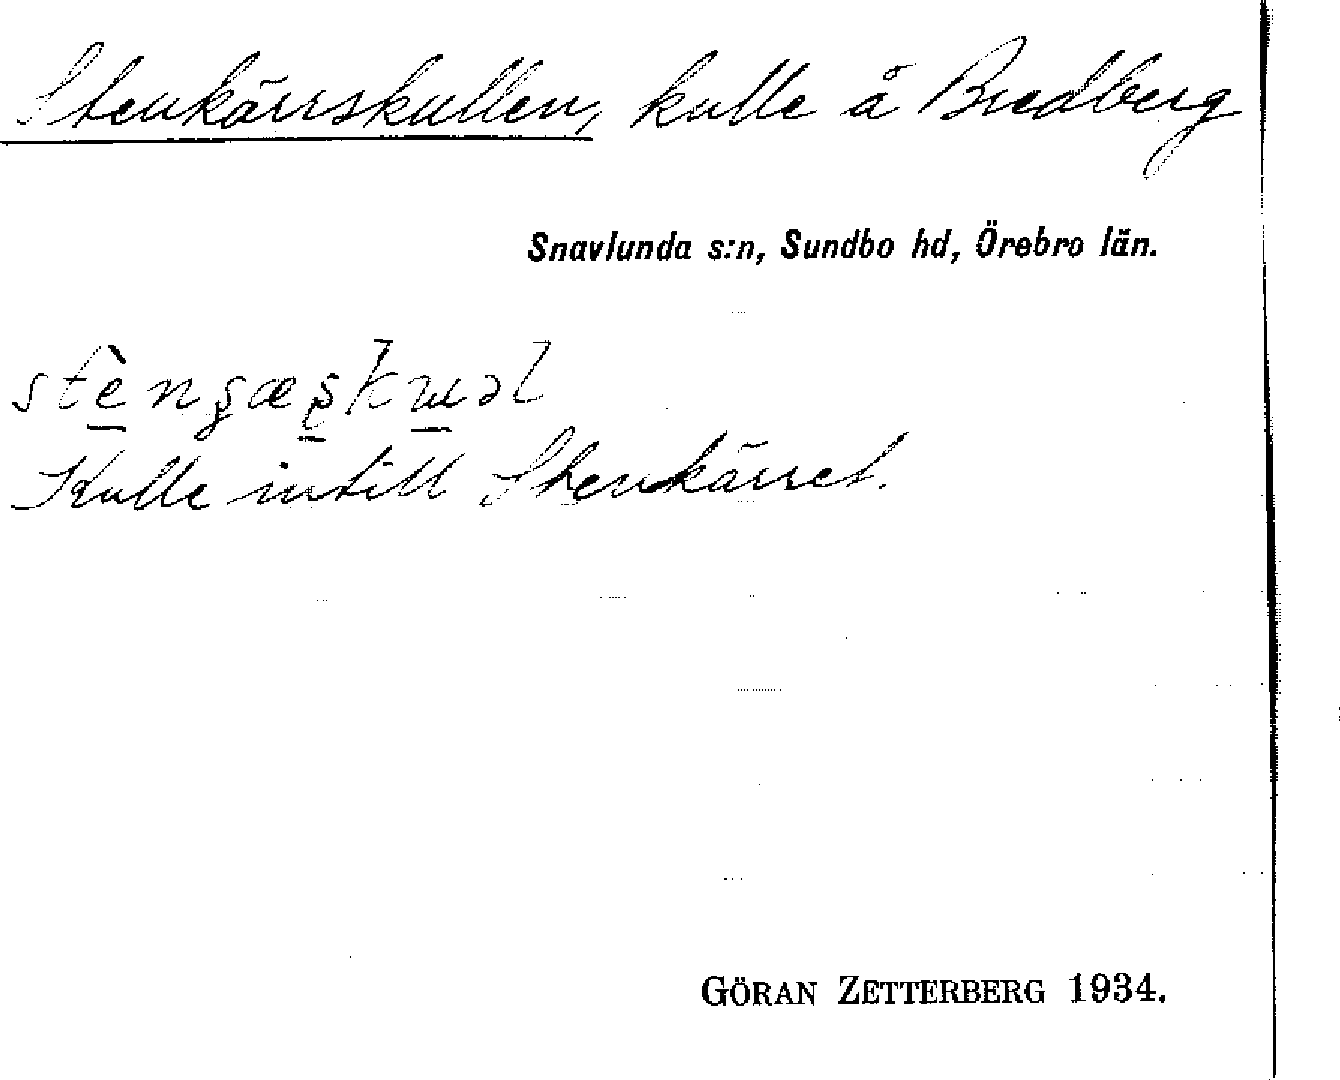 Stenkärrskullen, kulle å Bredberg
Snavlunda s:n, Sundbo hd, Örebro län.
Kulle intill Stenkärret.
GÖRAN ZETTERBERG 1934.